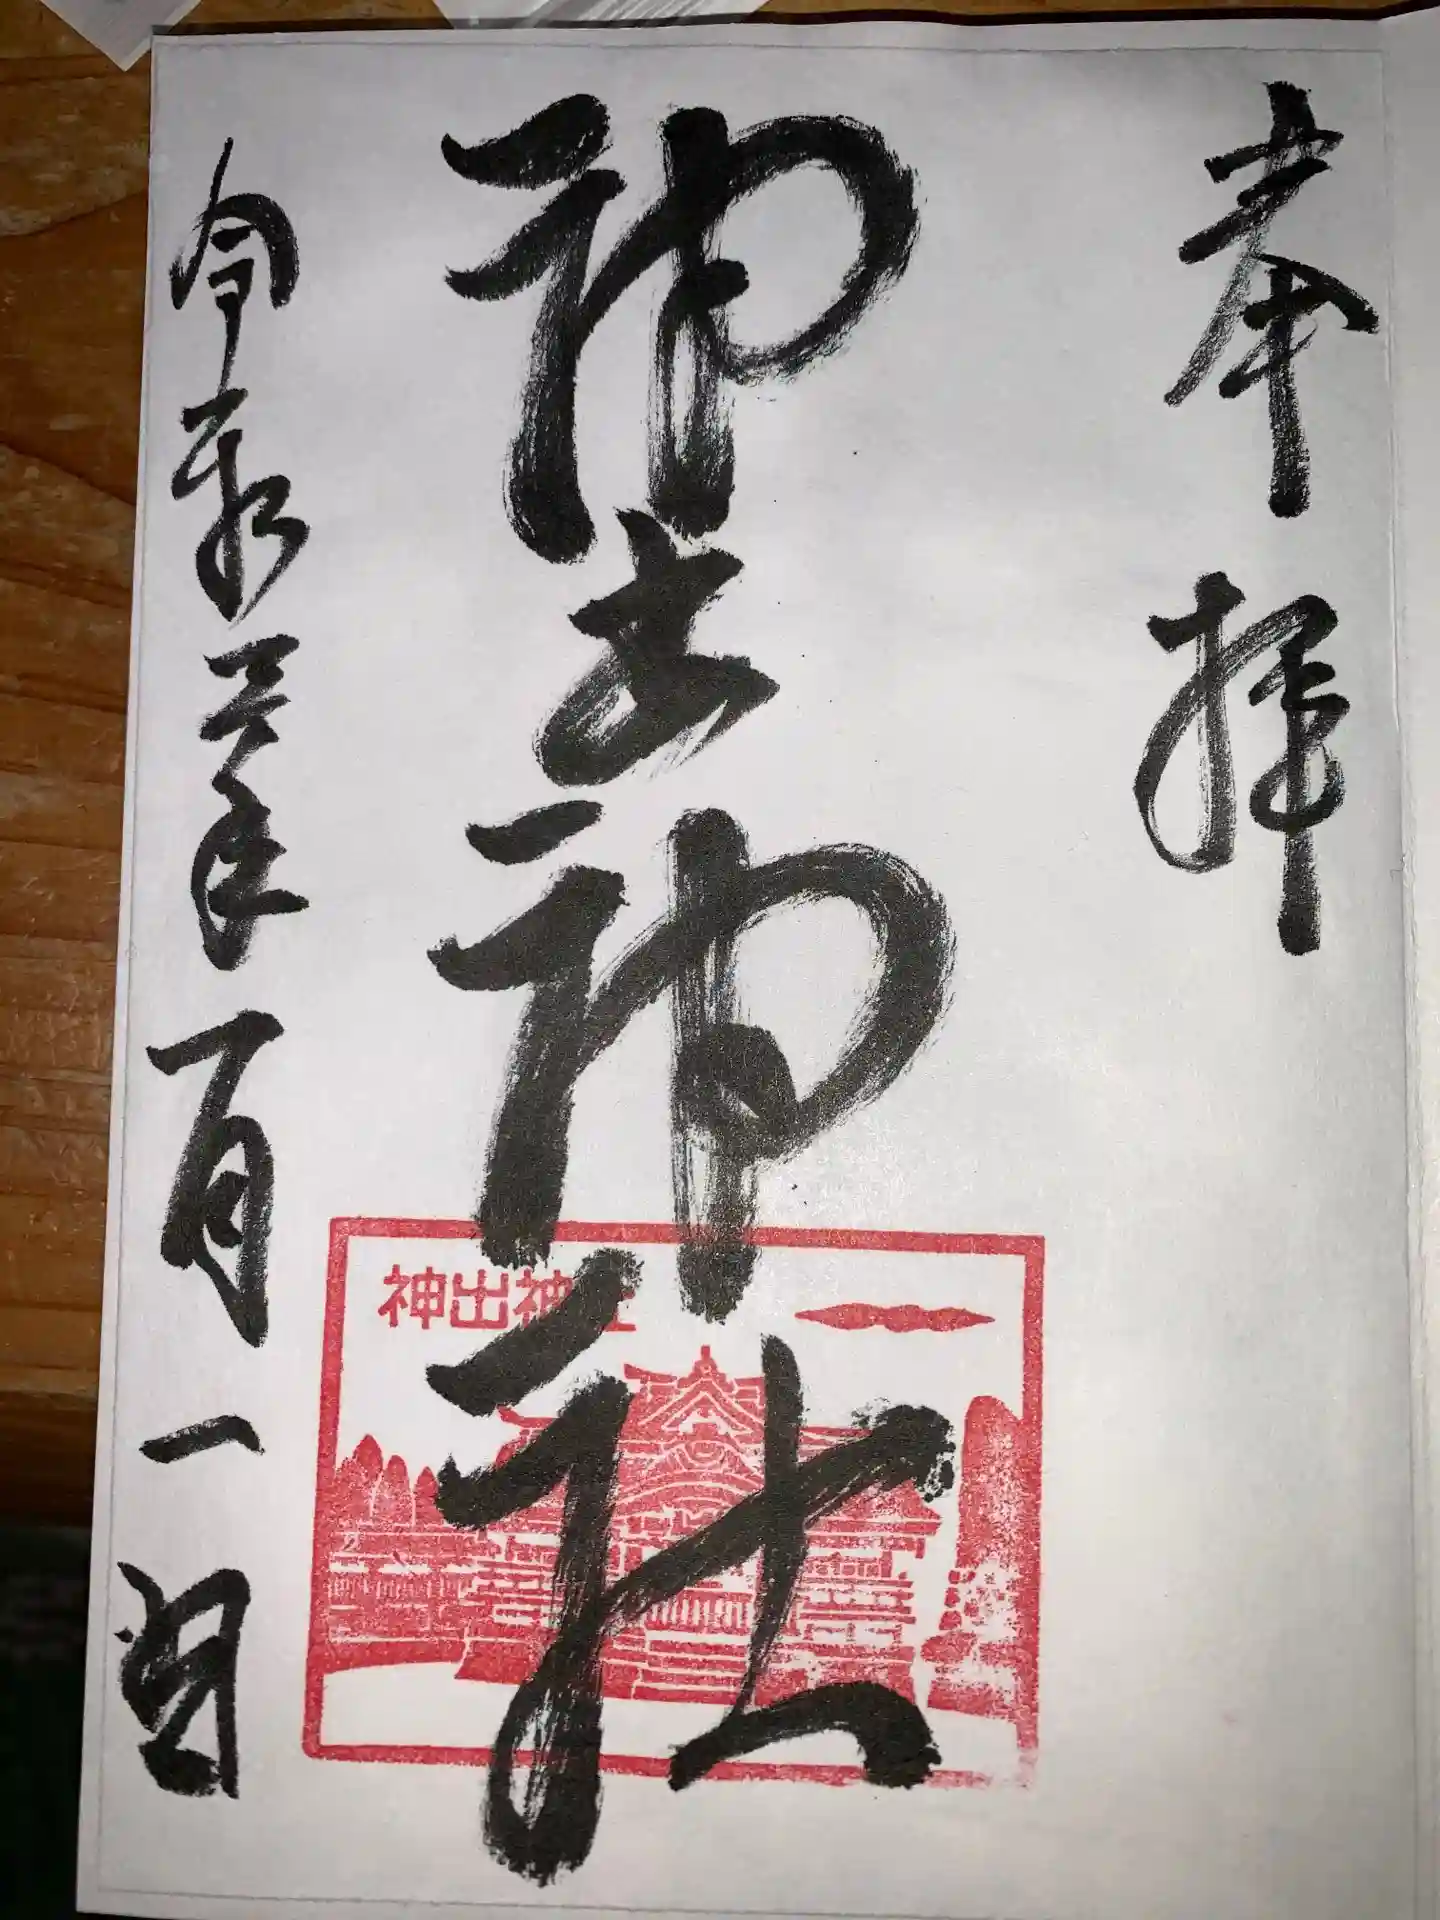 奉拝
神出神社
令和三年一月一日
神出神社